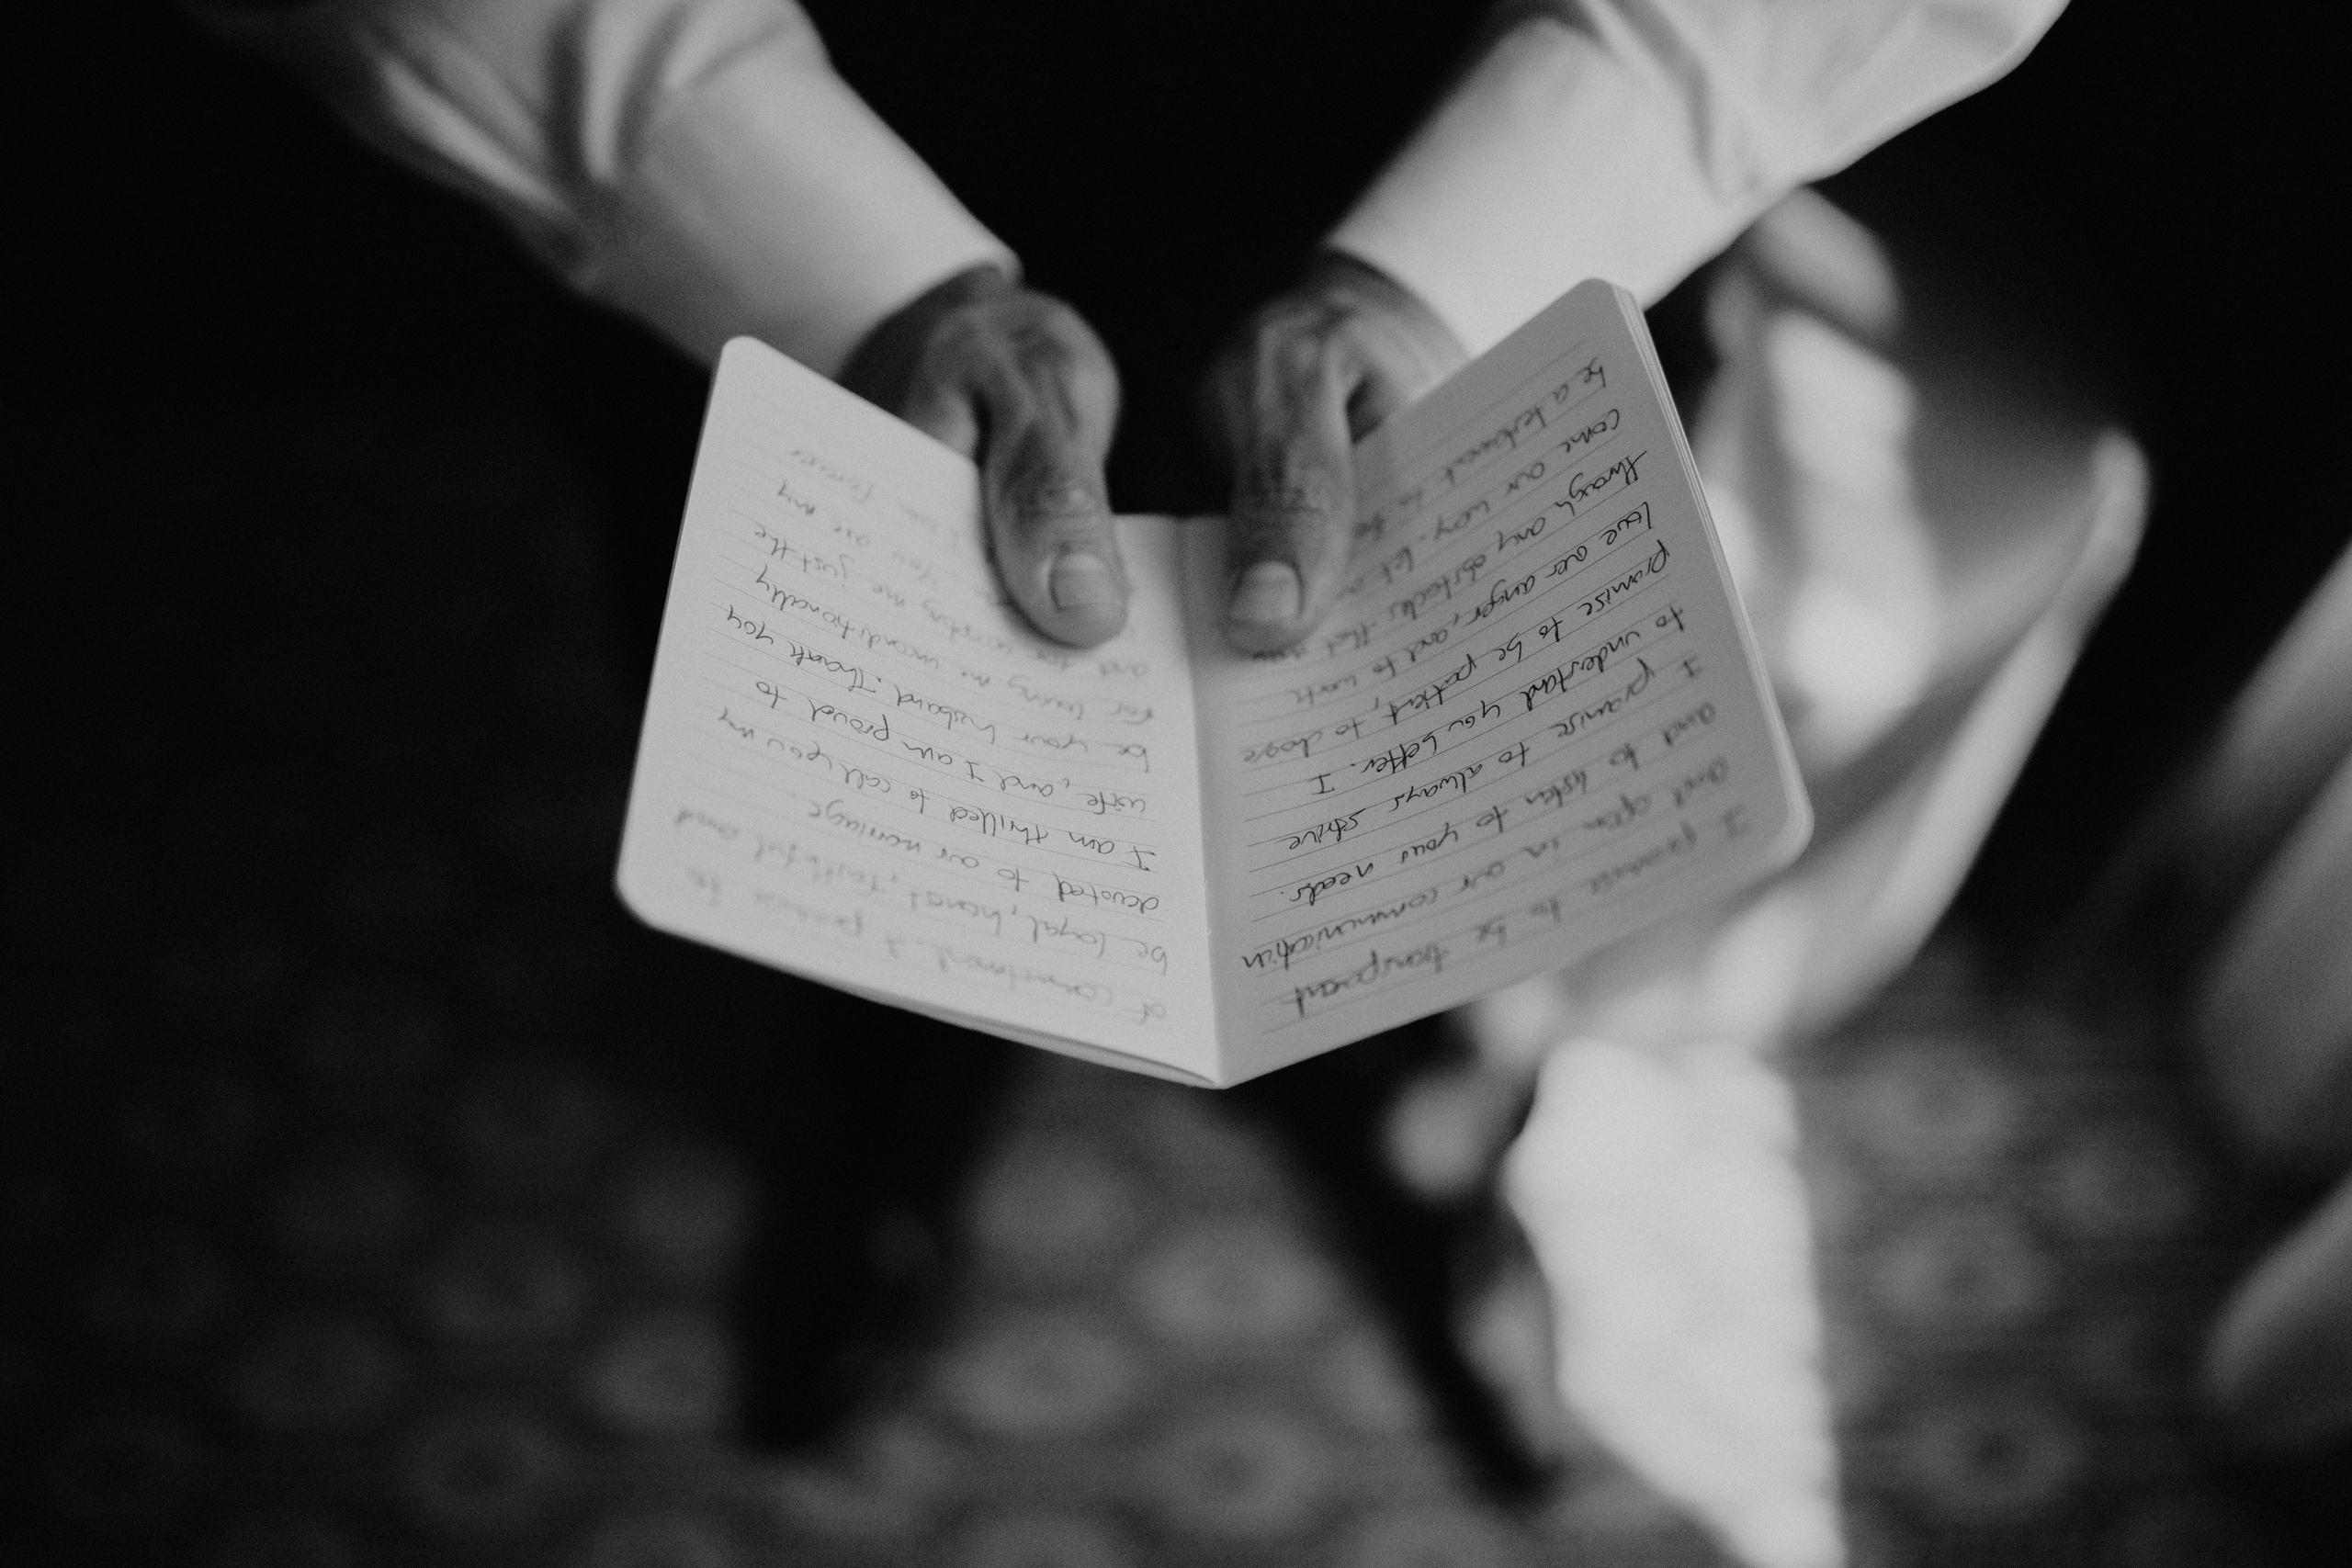 I promise to be transparent
and open in our communication
and to listen to your needs.
I promise to always strive
to understand you better. I
promise to be patient, to chose
love over anger, and to work
through any obstacles that may
come our way. Let
be a testament to
of commitment I promise be
be loyal, honest, faithful and
devoted to our marriage
I am thrilled to call you my
wife, and I am proud to
be your husband. Thank you
for loving me unconditionally
and for accepting me just the
you are my
forever